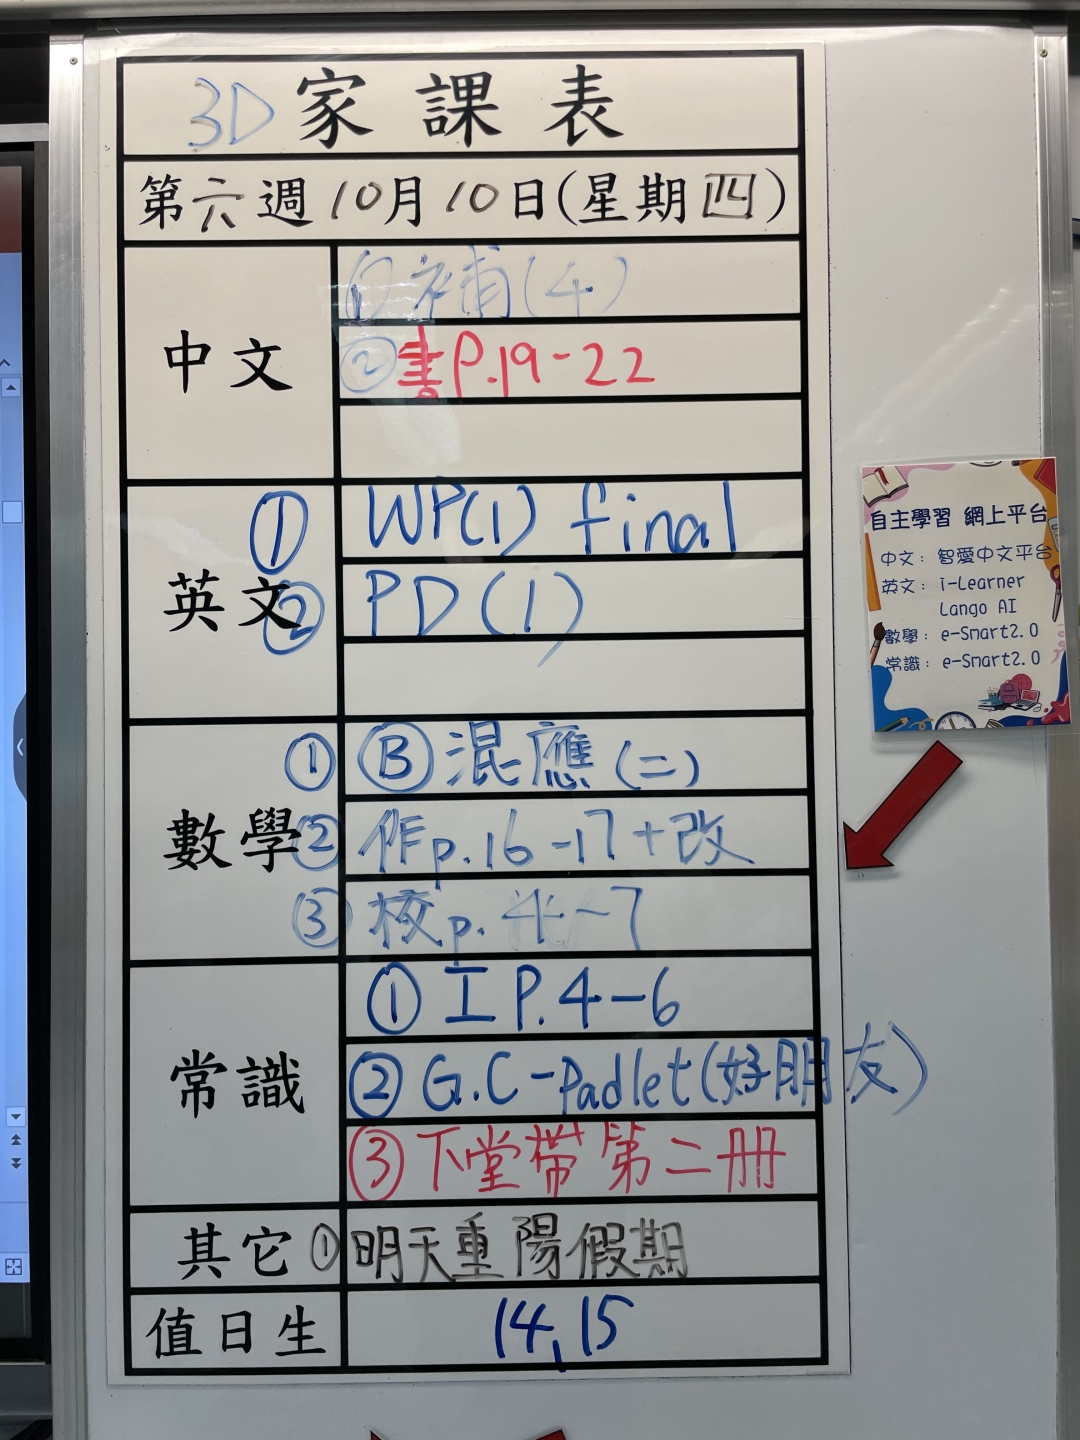 3D 家課表
第六週10月10日(星期四)
中文
①補(4)
②書P.19-22
英文
① WP(1) final
② PD(1)
數學
① Ⓑ混應(二)
② 作p.16-17+改
③ 校p.4-7
常識
①工P.4-6
②G.C-Padlet(好朋友)
③下堂帶第二冊
其它
①明天重陽假期
值日生
14,15
自主學習 網上平台
中文：智愛中文平台
英文：i-Learner
Lango AI
數學：e-Smart2.0
常識：e-Smart2.0